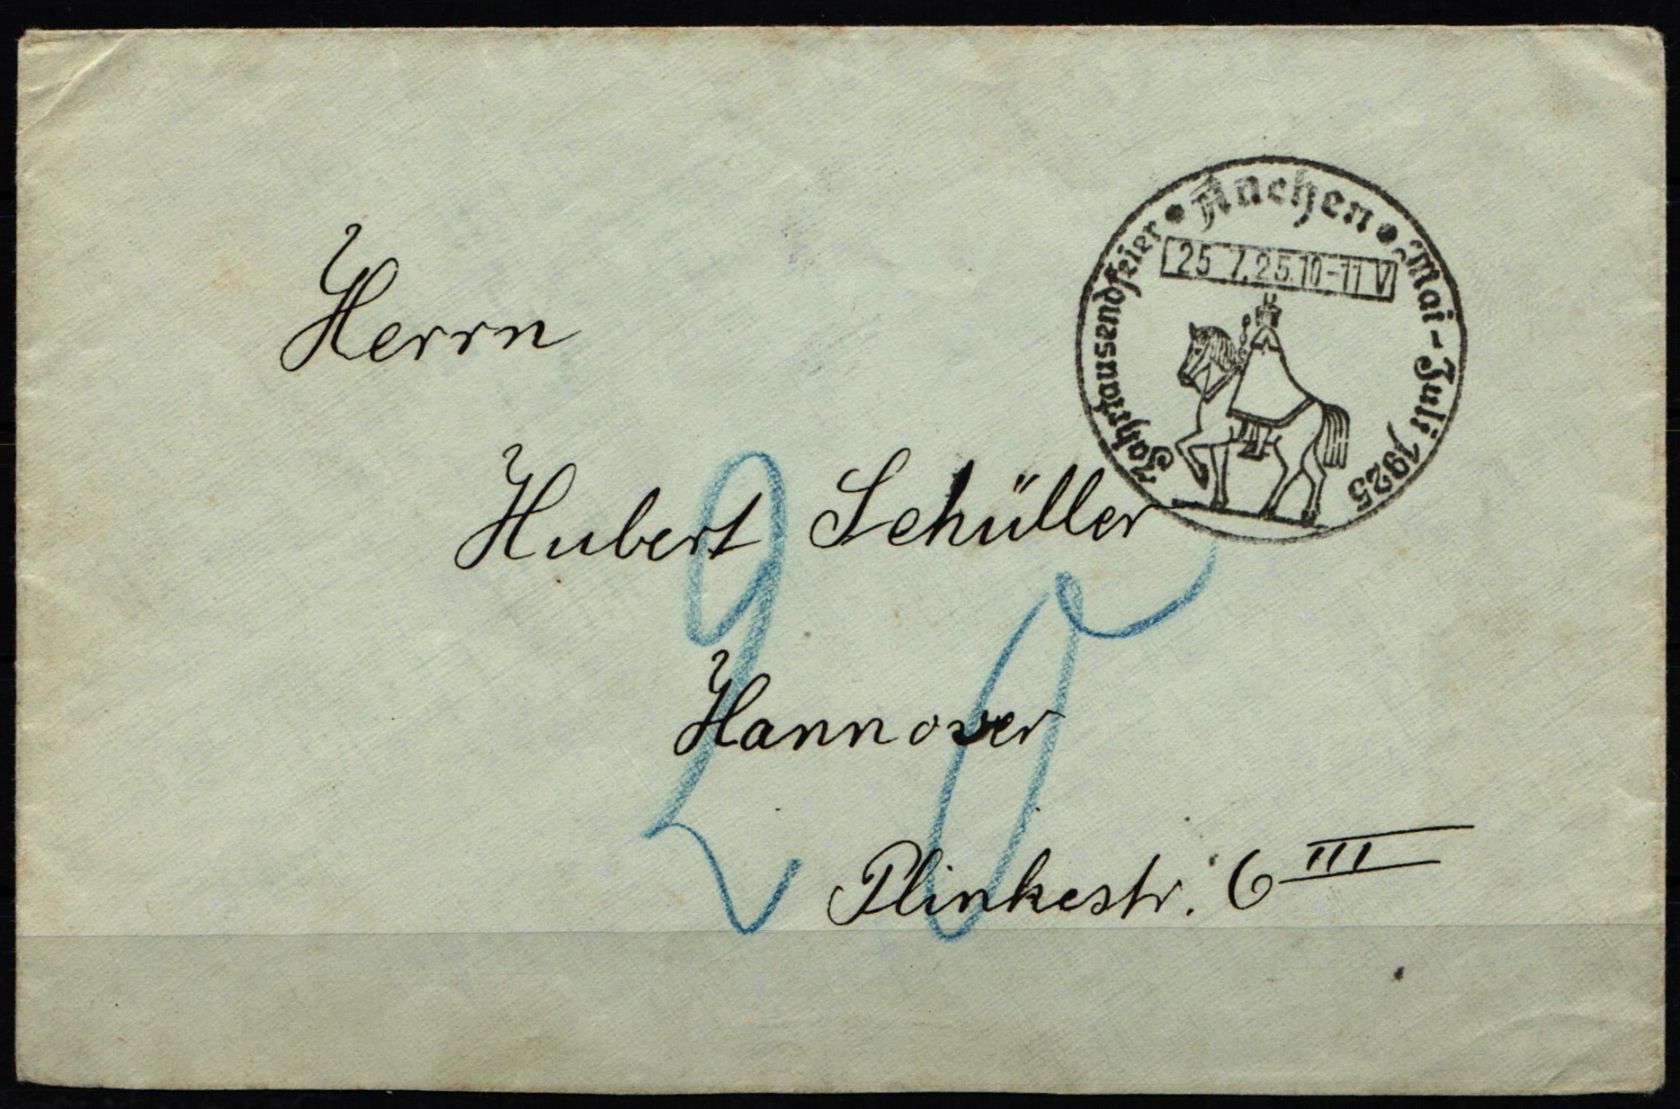 Aachen
Jahrtausendfeier
Mai-Juli 1925
25 7.25.10-11 V
Herrn
Hubert Schüller
20
Hannover
Plinkestr. 6 III